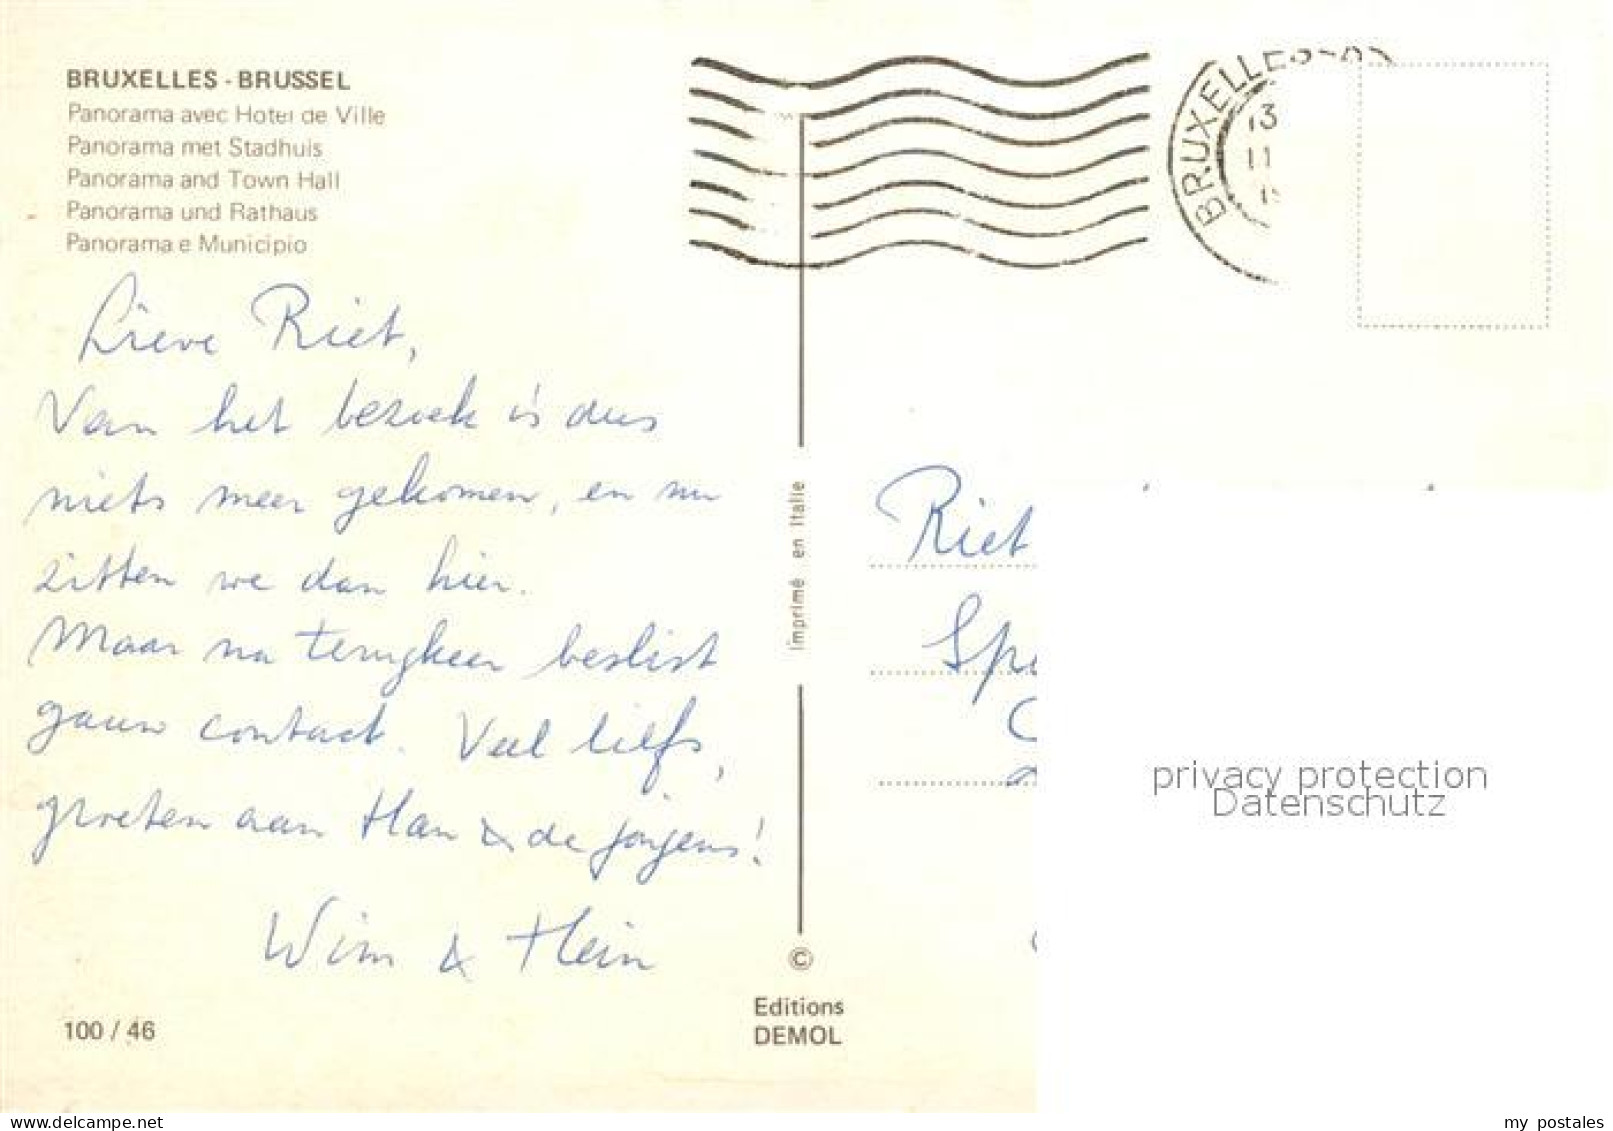 BRUXELLES - BRUSSEL
Panorama avec Hotel de Ville
Panorama met Stadhuis
Panorama and Town Hall
Panorama und Rathaus
Panorama e Municipio
BRUXELLES
13
11
Lieve Riet,
Van het bezoek is dus
niets meer gekomen, en nu
zitten we dan hier.
Maar na terugkeer beslist
gauw contact. Veel liefs,
groeten aan Han & de jongens!
Wim & Hein
100 / 46
imprimé en Italie
©
Editions
DEMOL
Riet
Sp
privacy protection
Datenschutz
delcampe.net
my_postales